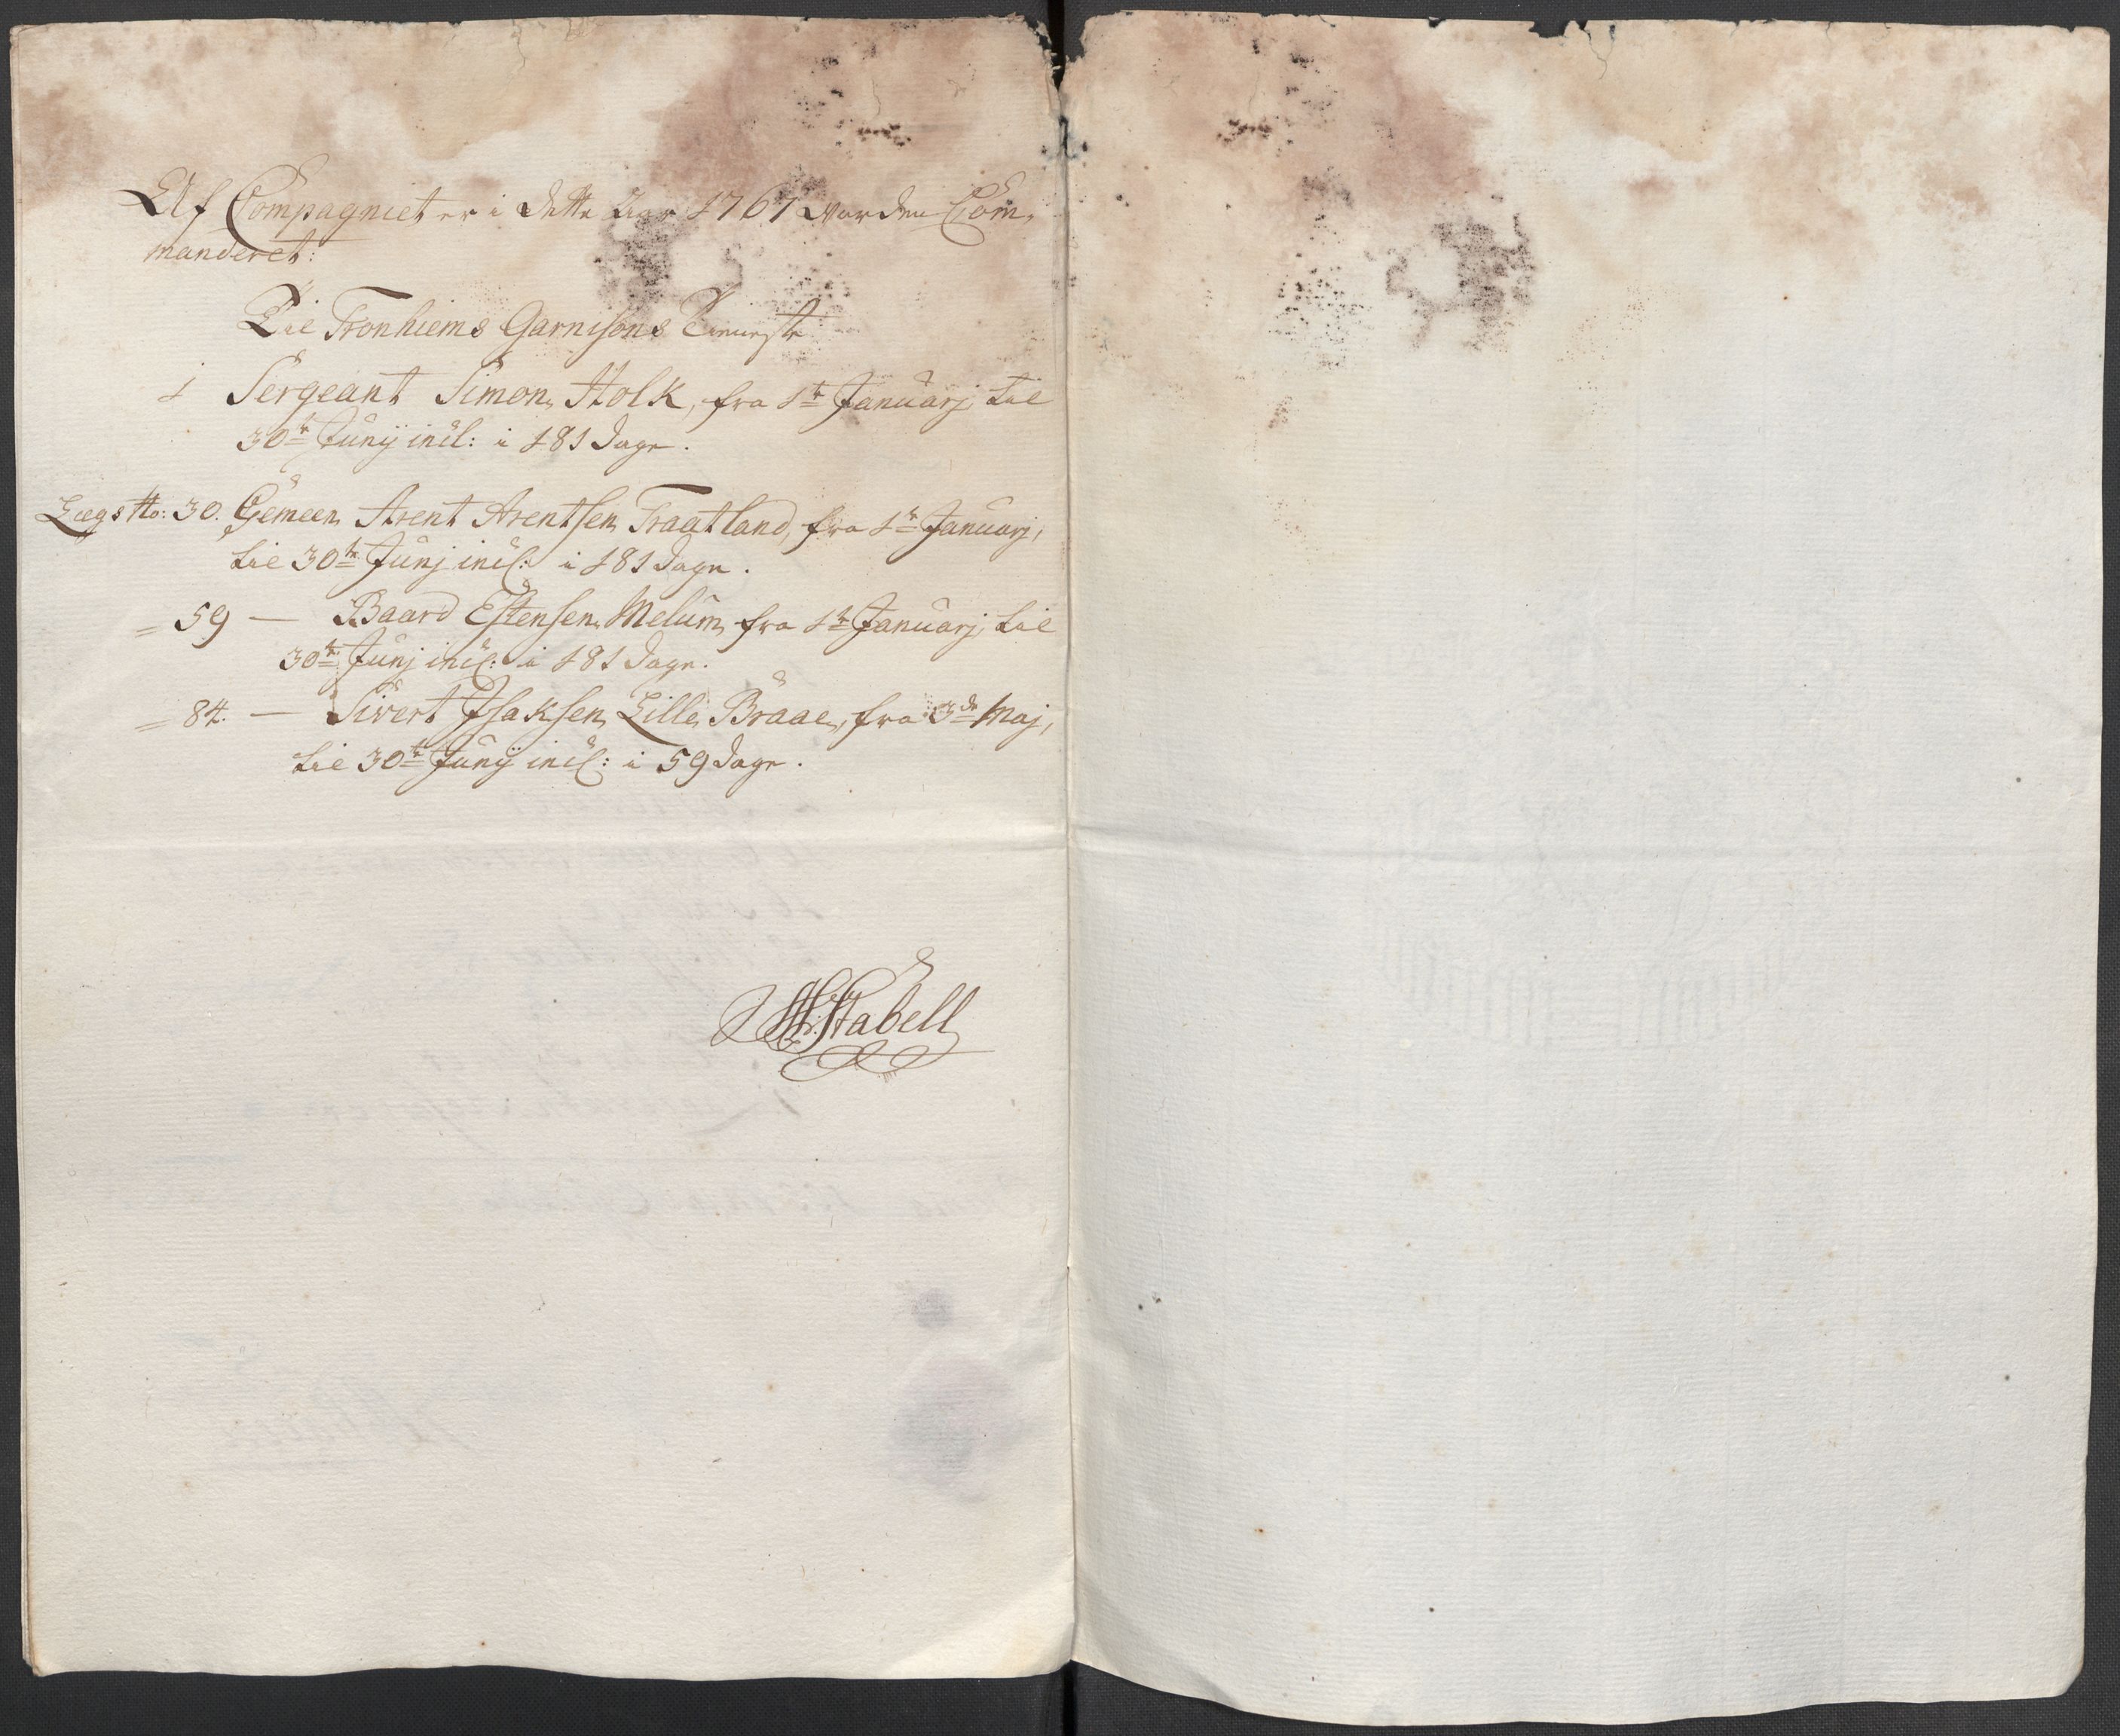 Af Compagniet er i dette Aar 1767 vorden Com-
manderet:
Til Tronhiems Garnisons Tieneste
1 Sergeant Simon Holk, fra 1te Januarj til
30te Junij incl: i 181 dage.
Lægs No: 30. Gemeen Arent Arentsen Traatland, fra 1te Januarj,
til 30te Junj incl: i 181 dage.
= 59 — Baard Estensen Melum fra 1te Januarj, til
30te Junj incl: i 181 dage.
= 84. — Sivert Jsaksen Lille Braae, fra 3de Maj,
til 30te Junij incl: i 59 dage.
Stabell